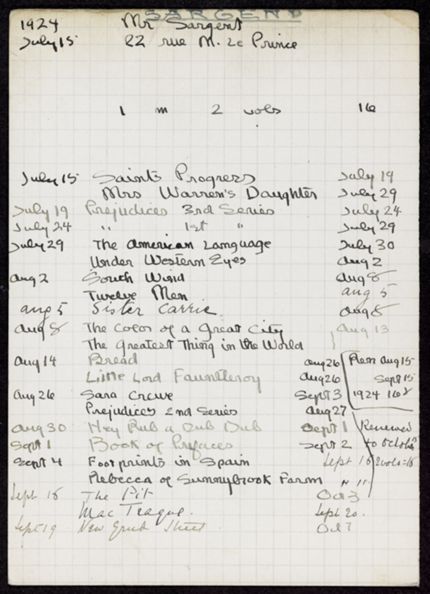 SARGENT
1924 Mr Sargent
July 15 22 rue M. le Prince
1 m 2 vols 16
July 15 Saint's Progress July 19
Mrs Warren's Daughter July 29
July 19 Prejudices 3rd Series July 24
July 24 " 1st " July 29
July 29 The American Language July 30
Under Western Eyes Aug 2
Aug 2 South Wind Aug 8
Twelve Men Aug 5
Aug 5 Sister Carrie Aug 8
Aug 8 The Color of a Great City } Aug 13
The Greatest Thing in the World
Aug 14 Bread Aug 26 Ren Aug 15
Little Lord Fauntleroy Aug 26 Sept 15
Aug 26 Sara Crewe Sept 3 1924 16
Prejudices 2nd Series Aug 27
Aug 30 Hey Rub a Dub Dub Sept 1 Renewed
Sept 1 Book of Prefaces Sept 2 to October
Sept 4 Footprints in Spain Sept 2 vols = 16
Rebecca of Sunnybrook Farm " "
Sept 18 The Pit Oct 3
Mac Teague. Sept 20.
Sept 19 New Grub Street Oct